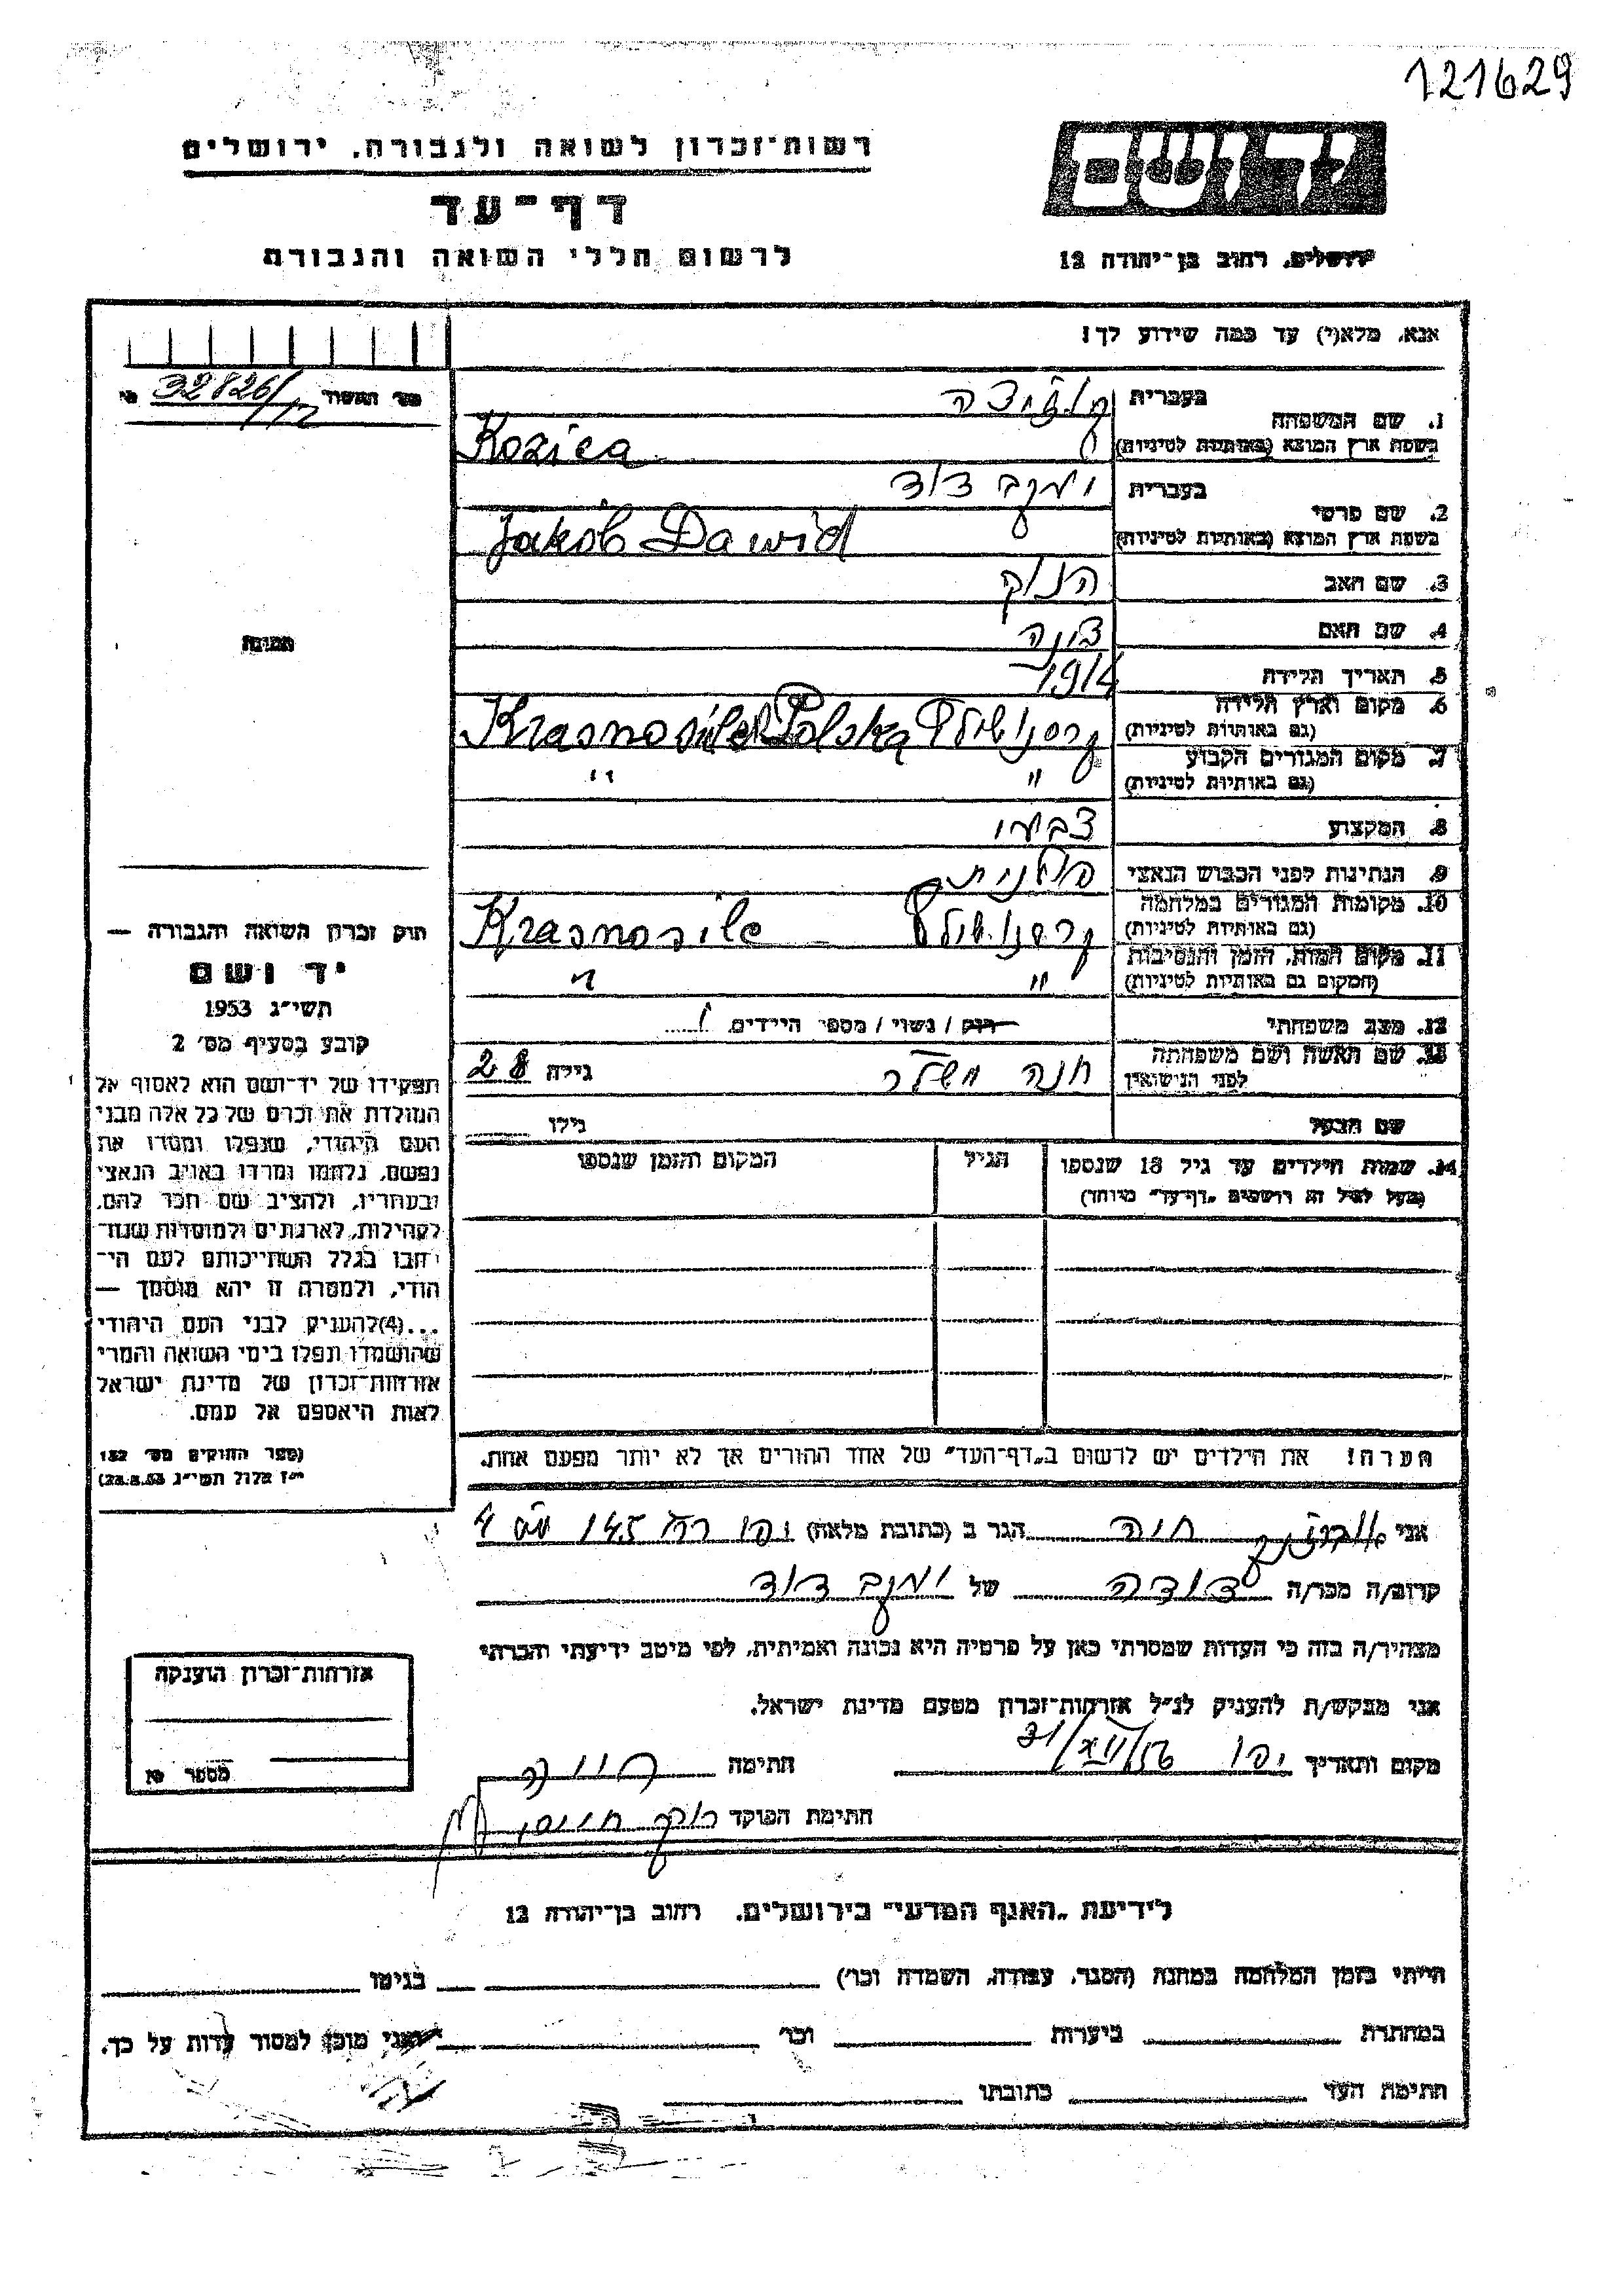 121629
רשות־זכרון לשואה ולגבורה, ירושלים
דף־עד
לרשום חללי השואה והגבורה
ירושלים, רחוב בן־יהודה 12
אנא, מלא(י) עד כמה שידוע לך!
32826/
1. שם המשפחה
בעברית
בשפת ארץ המוצא (באותיות לטיניות) Kozica
2. שם פרטי
בעברית יעקב דוד
בשפת ארץ המוצא (באותיות לטיניות) Jakób Dawid
3. שם האב הנוק
4. שם האם
5. תאריך הלידה 1914
6. מקום וארץ הלידה
(גם באותיות לטיניות) Polska
7. מקום המגורים הקבוע
(גם באותיות לטיניות) " "
8. המקצוע צבעי
9. הנתינות לפני הכבוש הנאצי פולנית
10. מקומות המגורים במלחמה
(גם באותיות לטיניות) Krasnosilc
11. מקום המות, הזמן והנסיבות
(המקום גם באותיות לטיניות) " "
12. מצב משפחתי רוק / נשוי / מספר הילדים 1
13. שם האשה ושם משפחתה
לפני הנישואין חנה גילה 28
שם הבעל גילו
14. שמות הילדים עד גיל 18 שנספו הגיל המקום והזמן שנספו
(מעל לגיל זה רושמים „דף־עד" מיוחד)
הערה! את הילדים יש לרשום ב„דף־העד" של אחד ההורים אך לא יותר מפעם אחת.
תמונה
חוק זכרון השואה והגבורה —
יד ושם
תשי״ג 1953
קובע בסעיף מס׳ 2
תפקידו של יד־ושם הוא לאסוף אל
המולדת את זכרם של כל אלה מבני
העם היהודי, שנפלו ומסרו את
נפשם, נלחמו ומרדו באויב הנאצי
ובעוזריו, ולהציב שם וזכר להם,
לקהילות, לארגונים ולמוסדות שנח־
רבו בגלל השתייכותם לעם הי־
הודי, ולמטרה זו יהא מוסמך —
...(4) להעניק לבני העם היהודי
שהושמדו ונפלו בימי השואה והמרי
אזרחות־זכרון של מדינת ישראל
לאות היאספם אל עמם.
(ספר החוקים מס׳ 132
י״ז אלול תשי״ג 28.8.53)
אני חוה הגר ב (כתובת מלאה) יפו 145 4
קרוב/ה מכר/ה דודה של יעקב דוד
מצהיר/ה בזה כי העדות שמסרתי כאן על פרטיה היא נכונה ואמיתית, לפי מיטב ידיעתי והכרתי
אני מבקש/ת להעניק לנ״ל אזרחות־זכרון מטעם מדינת ישראל.
מקום ותאריך יפו 31/XII/56 חתימה
חתימת הפוקד
אזרחות־זכרון הוענקה
מספר
לידיעת „האגף המדעי" בירושלים, רחוב בן־יהודה 12
הייתי בזמן המלחמה במחנה (הסגר, עבודה, השמדה וכו׳) בגיטו
במחתרת ביערות וכו׳ ואני מוכן למסור עדות על כך.
חתימת העד כתובתו